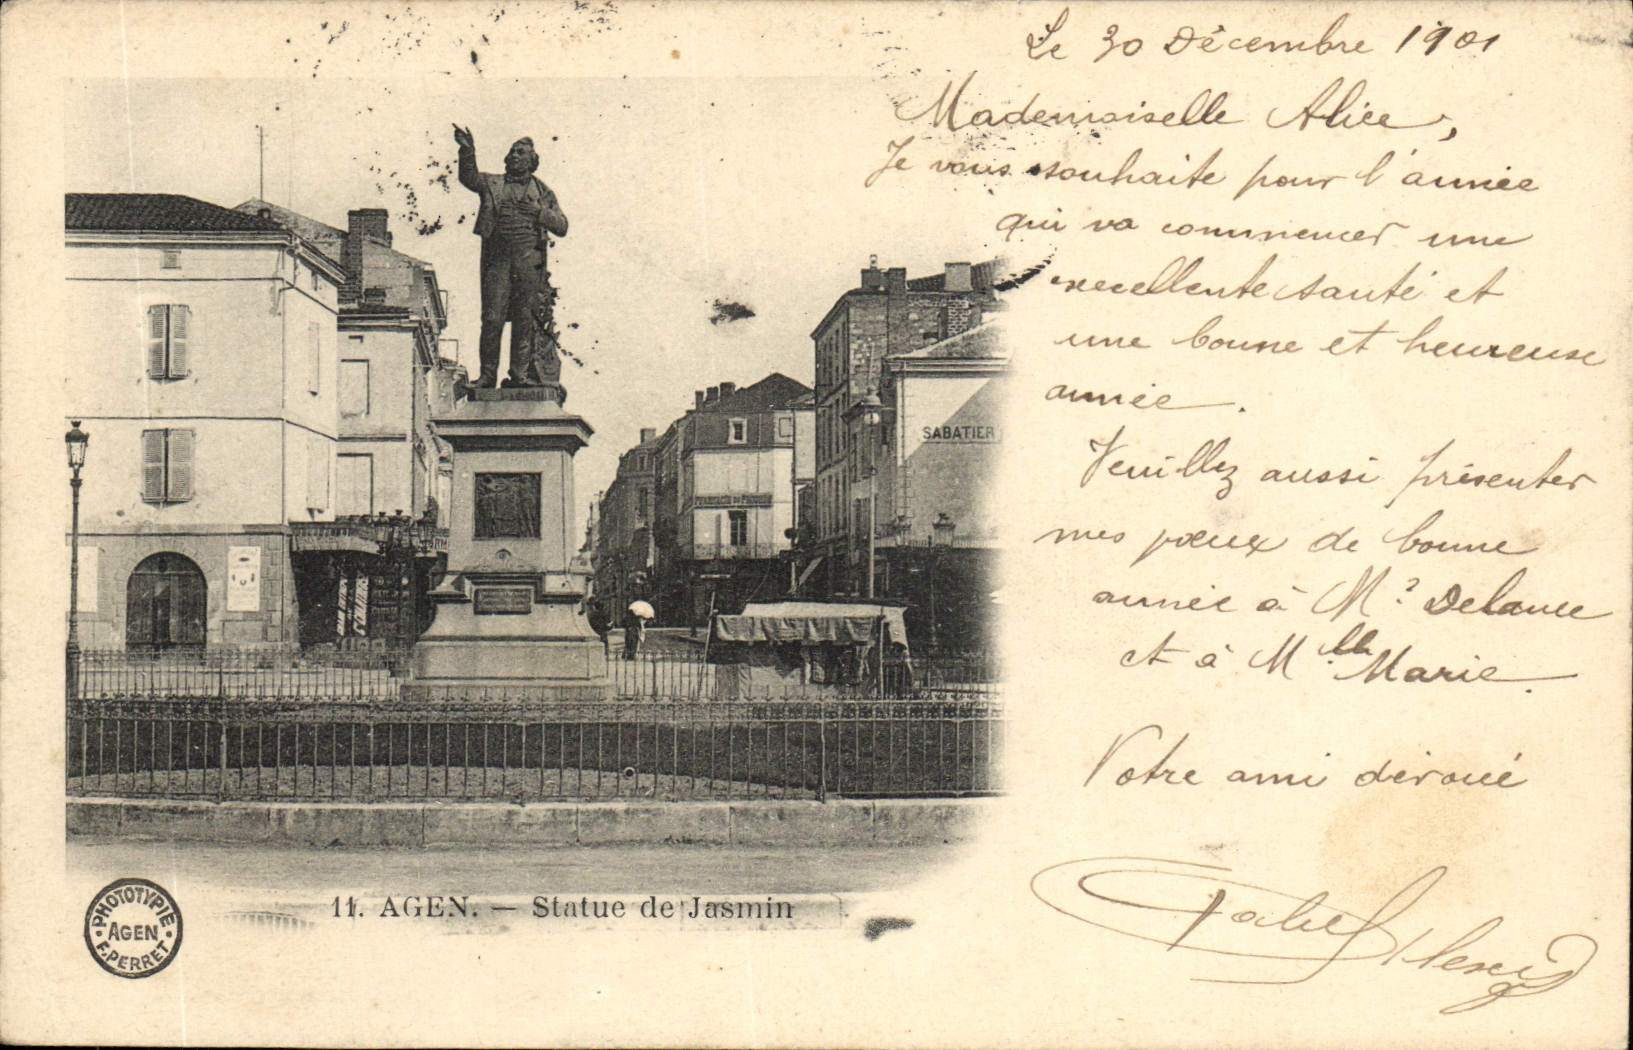 Le 30 Décembre 1901
Mademoiselle Alice,
Je vous souhaite pour l'année
qui va commencer une
excellente santé et
une bonne et heureuse
année.
Veuillez aussi présenter
mes vœux de bonne
année à M? Delance
et à Mlle Marie.
Votre ami dévoué
SABATIER
11. AGEN. — Statue de Jasmin
PHOTOTYPIE
AGEN
F. PERRET